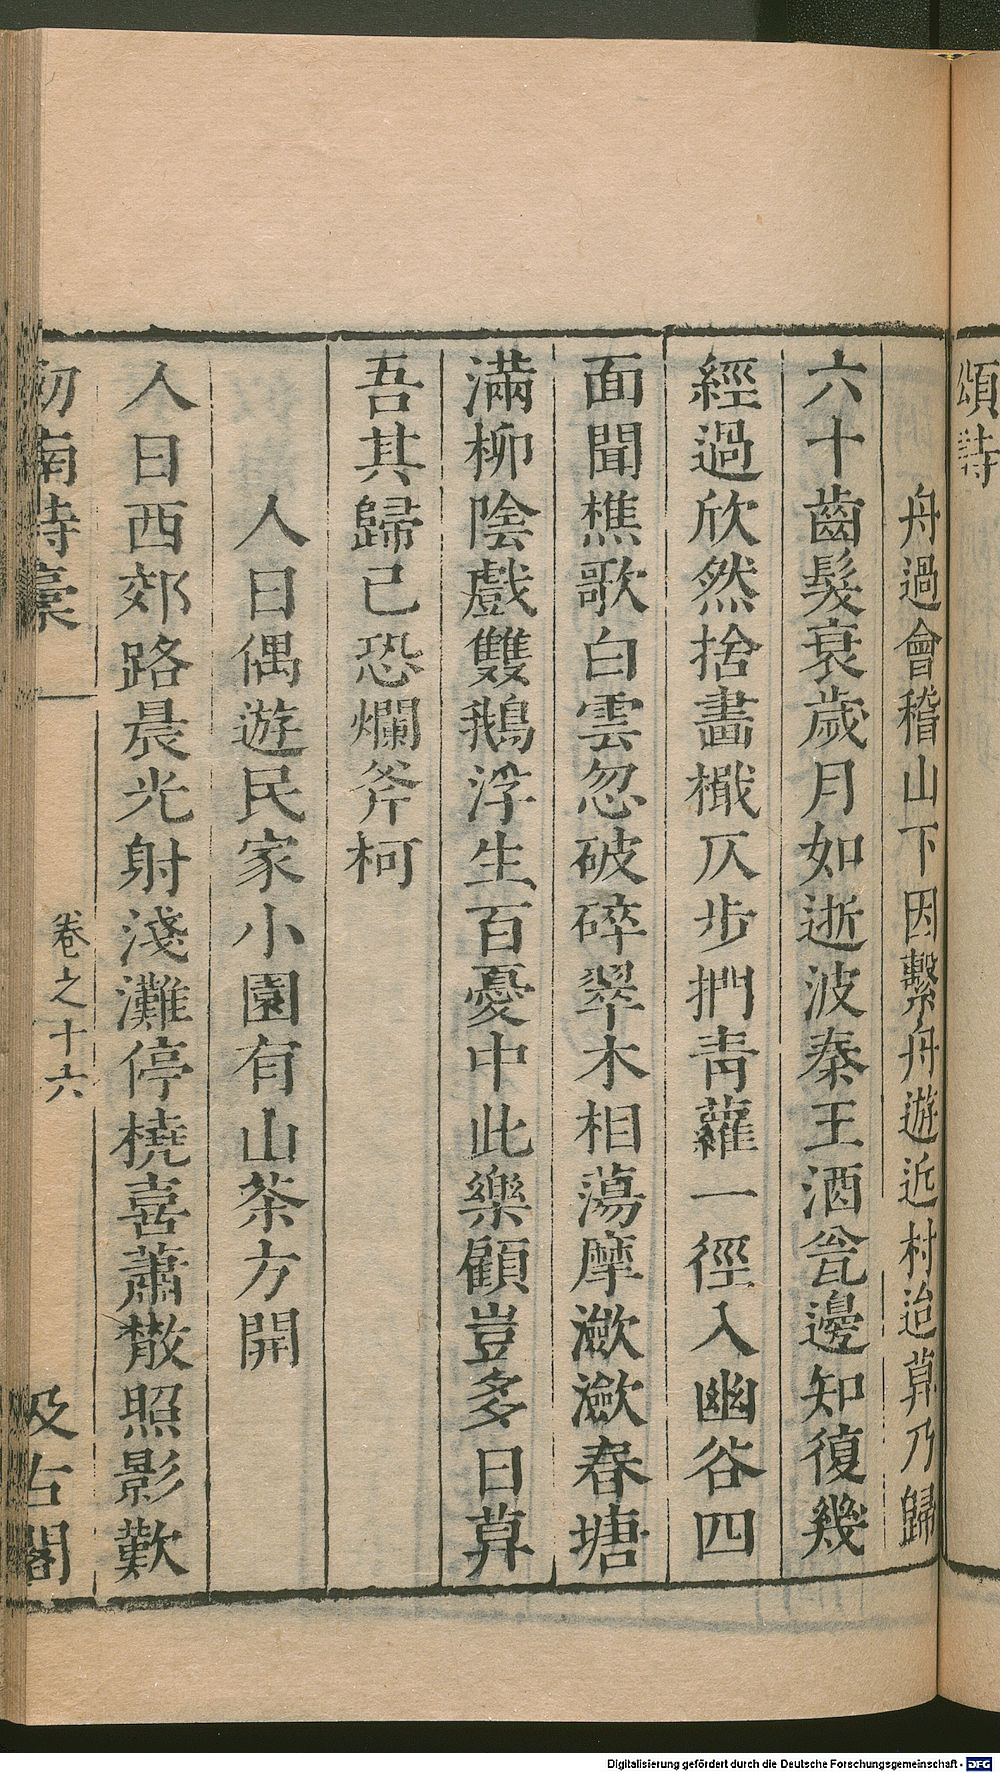 頌詩
舟過會稽山下因繫舟遊近村迨莫乃歸
六十齒髮衰歲月如逝波秦王酒瓮邊知復幾
經過欣然捨畫檝仄步捫青蘿一徑入幽谷四
面聞樵歌白雲忽破碎翠木相蕩摩瀲瀲春塘
滿柳陰戲雙鵝浮生百憂中此樂顧豈多日莫
吾其歸已恐爛斧柯
人日偶遊民家小園有山茶方開
人日西郊路晨光射淺灘停橈喜蕭散照影歎
劒南詩稾 卷之十六 汲古閣
Digitalisierung gefördert durch die Deutsche Forschungsgemeinschaft - DFG